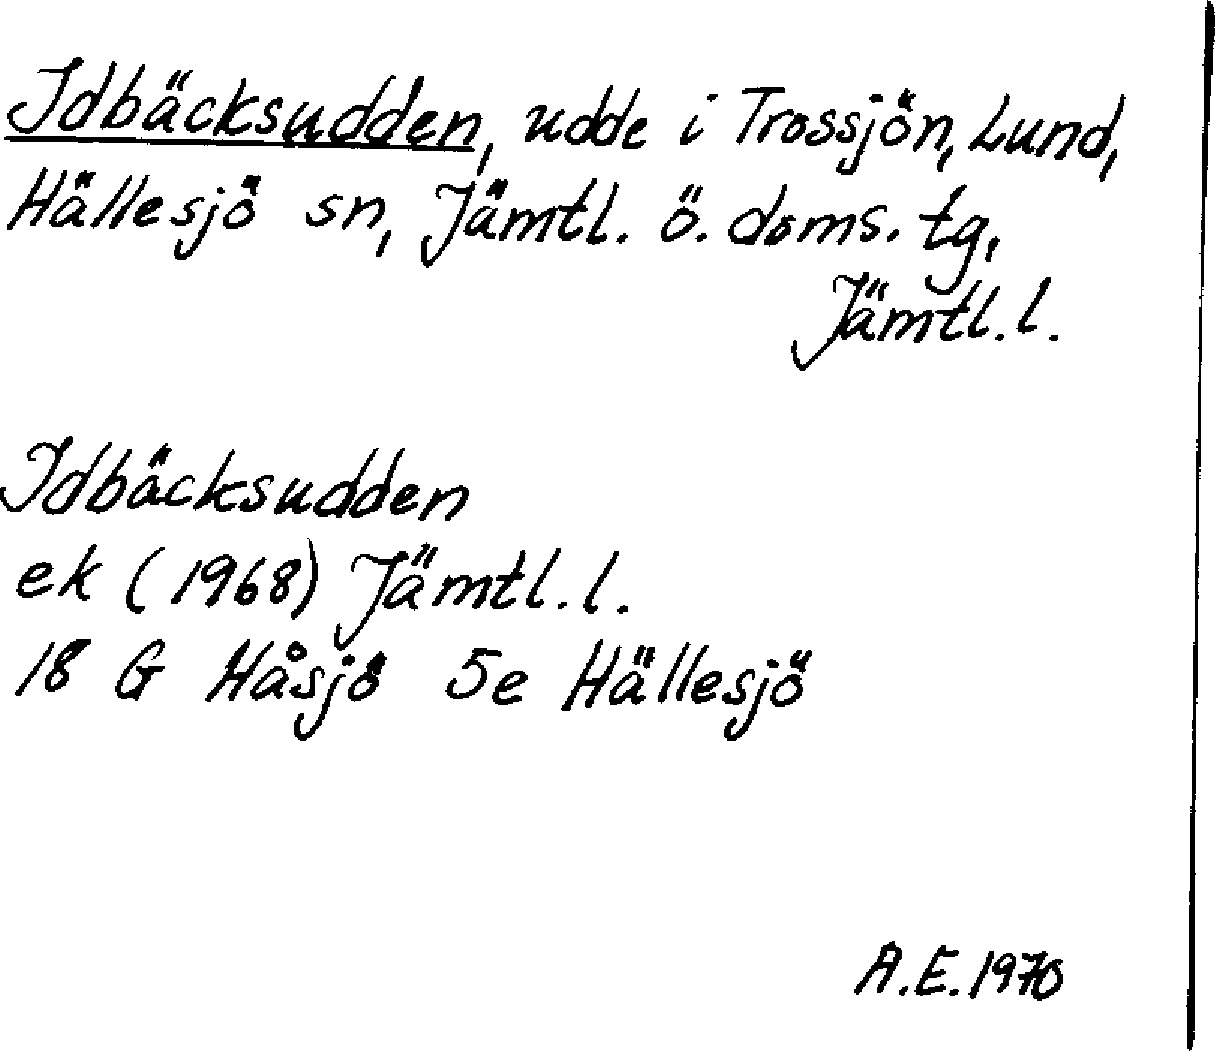 Idbäcksudden, udde i Trossjön, Lund,
Hällesjö sn, Jämtl. ö. doms. tg,
Jämtl. l.
Idbäcksudden
ek (1968) Jämtl. l.
18 G Håsjö 5e Hällesjö
A.E. 1970